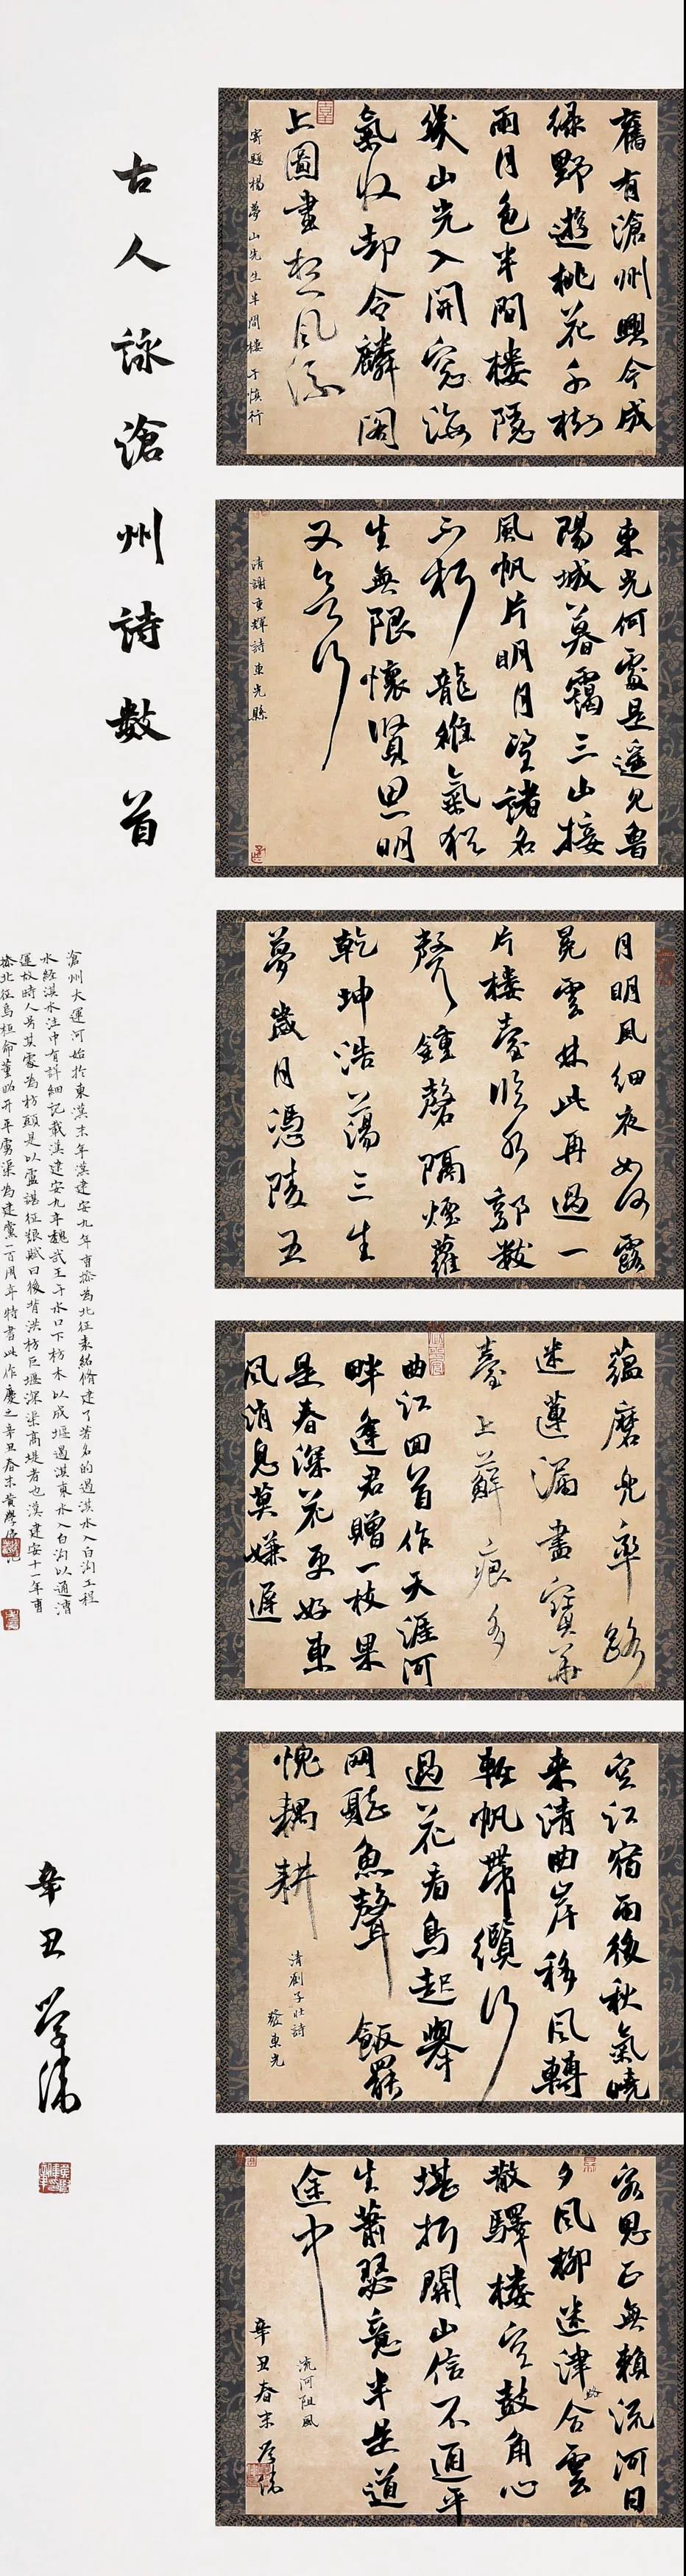 舊有滄州興今成
綠野遊桃花千樹
雨月色半間樓隱
幾山光入開窗海
氣收却令麟閣
上圖畫想風流
寄題楊夢山先生半間樓 于慎行
東光何處是遥見魯
陽城暮靄三山接
風帆片明月望諸名
不朽龍雅氣猶
生無限懷賢思明
又
清謝重輝詩東光縣
月明風細夜如何露
冕雲林此再過一
片樓臺临水郭數
聲鍾磬隔煙蘿
乾坤浩蕩三生
夢歲月憑陵五
蘊磨兜率路
迷蓮漏盡寶華
臺上蘚痕多
曲江回首作天涯河
畔逢君贈一枝果
是春深花更好東
風消息莫嫌遲
空江宿雨後秋氣曉
来清曲岸移風轉
輕帆帶纜行
過花看鳥起舉
網聽魚聲飯罷
愧耦耕
清劉子壯詩
發東光
客思正無賴流河日
夕風柳迷津路合雲
散驛樓空鼓角心
堪折關山信不通平
生蕭瑟意半是道
途中
流河阻風
辛丑春末學偉
古人詠滄州詩數首
滄州大運河始於東漢末年漢建安九年曹操為北征袁紹修建了著名的遏淇水入白溝工程
水經淇水注中有詳細記載漢建安九年魏武王于水口下枋木以成堰遏淇東水入白溝以通漕
運故時人号其處為枋頭是以盧諶征艱賦曰後背洪枋巨堰深渠高堤者也漢建安十一年曹
操北征烏桓命董昭开平虜渠為建黨一百周年特書此作慶之辛丑春末黄學偉記
辛丑學偉